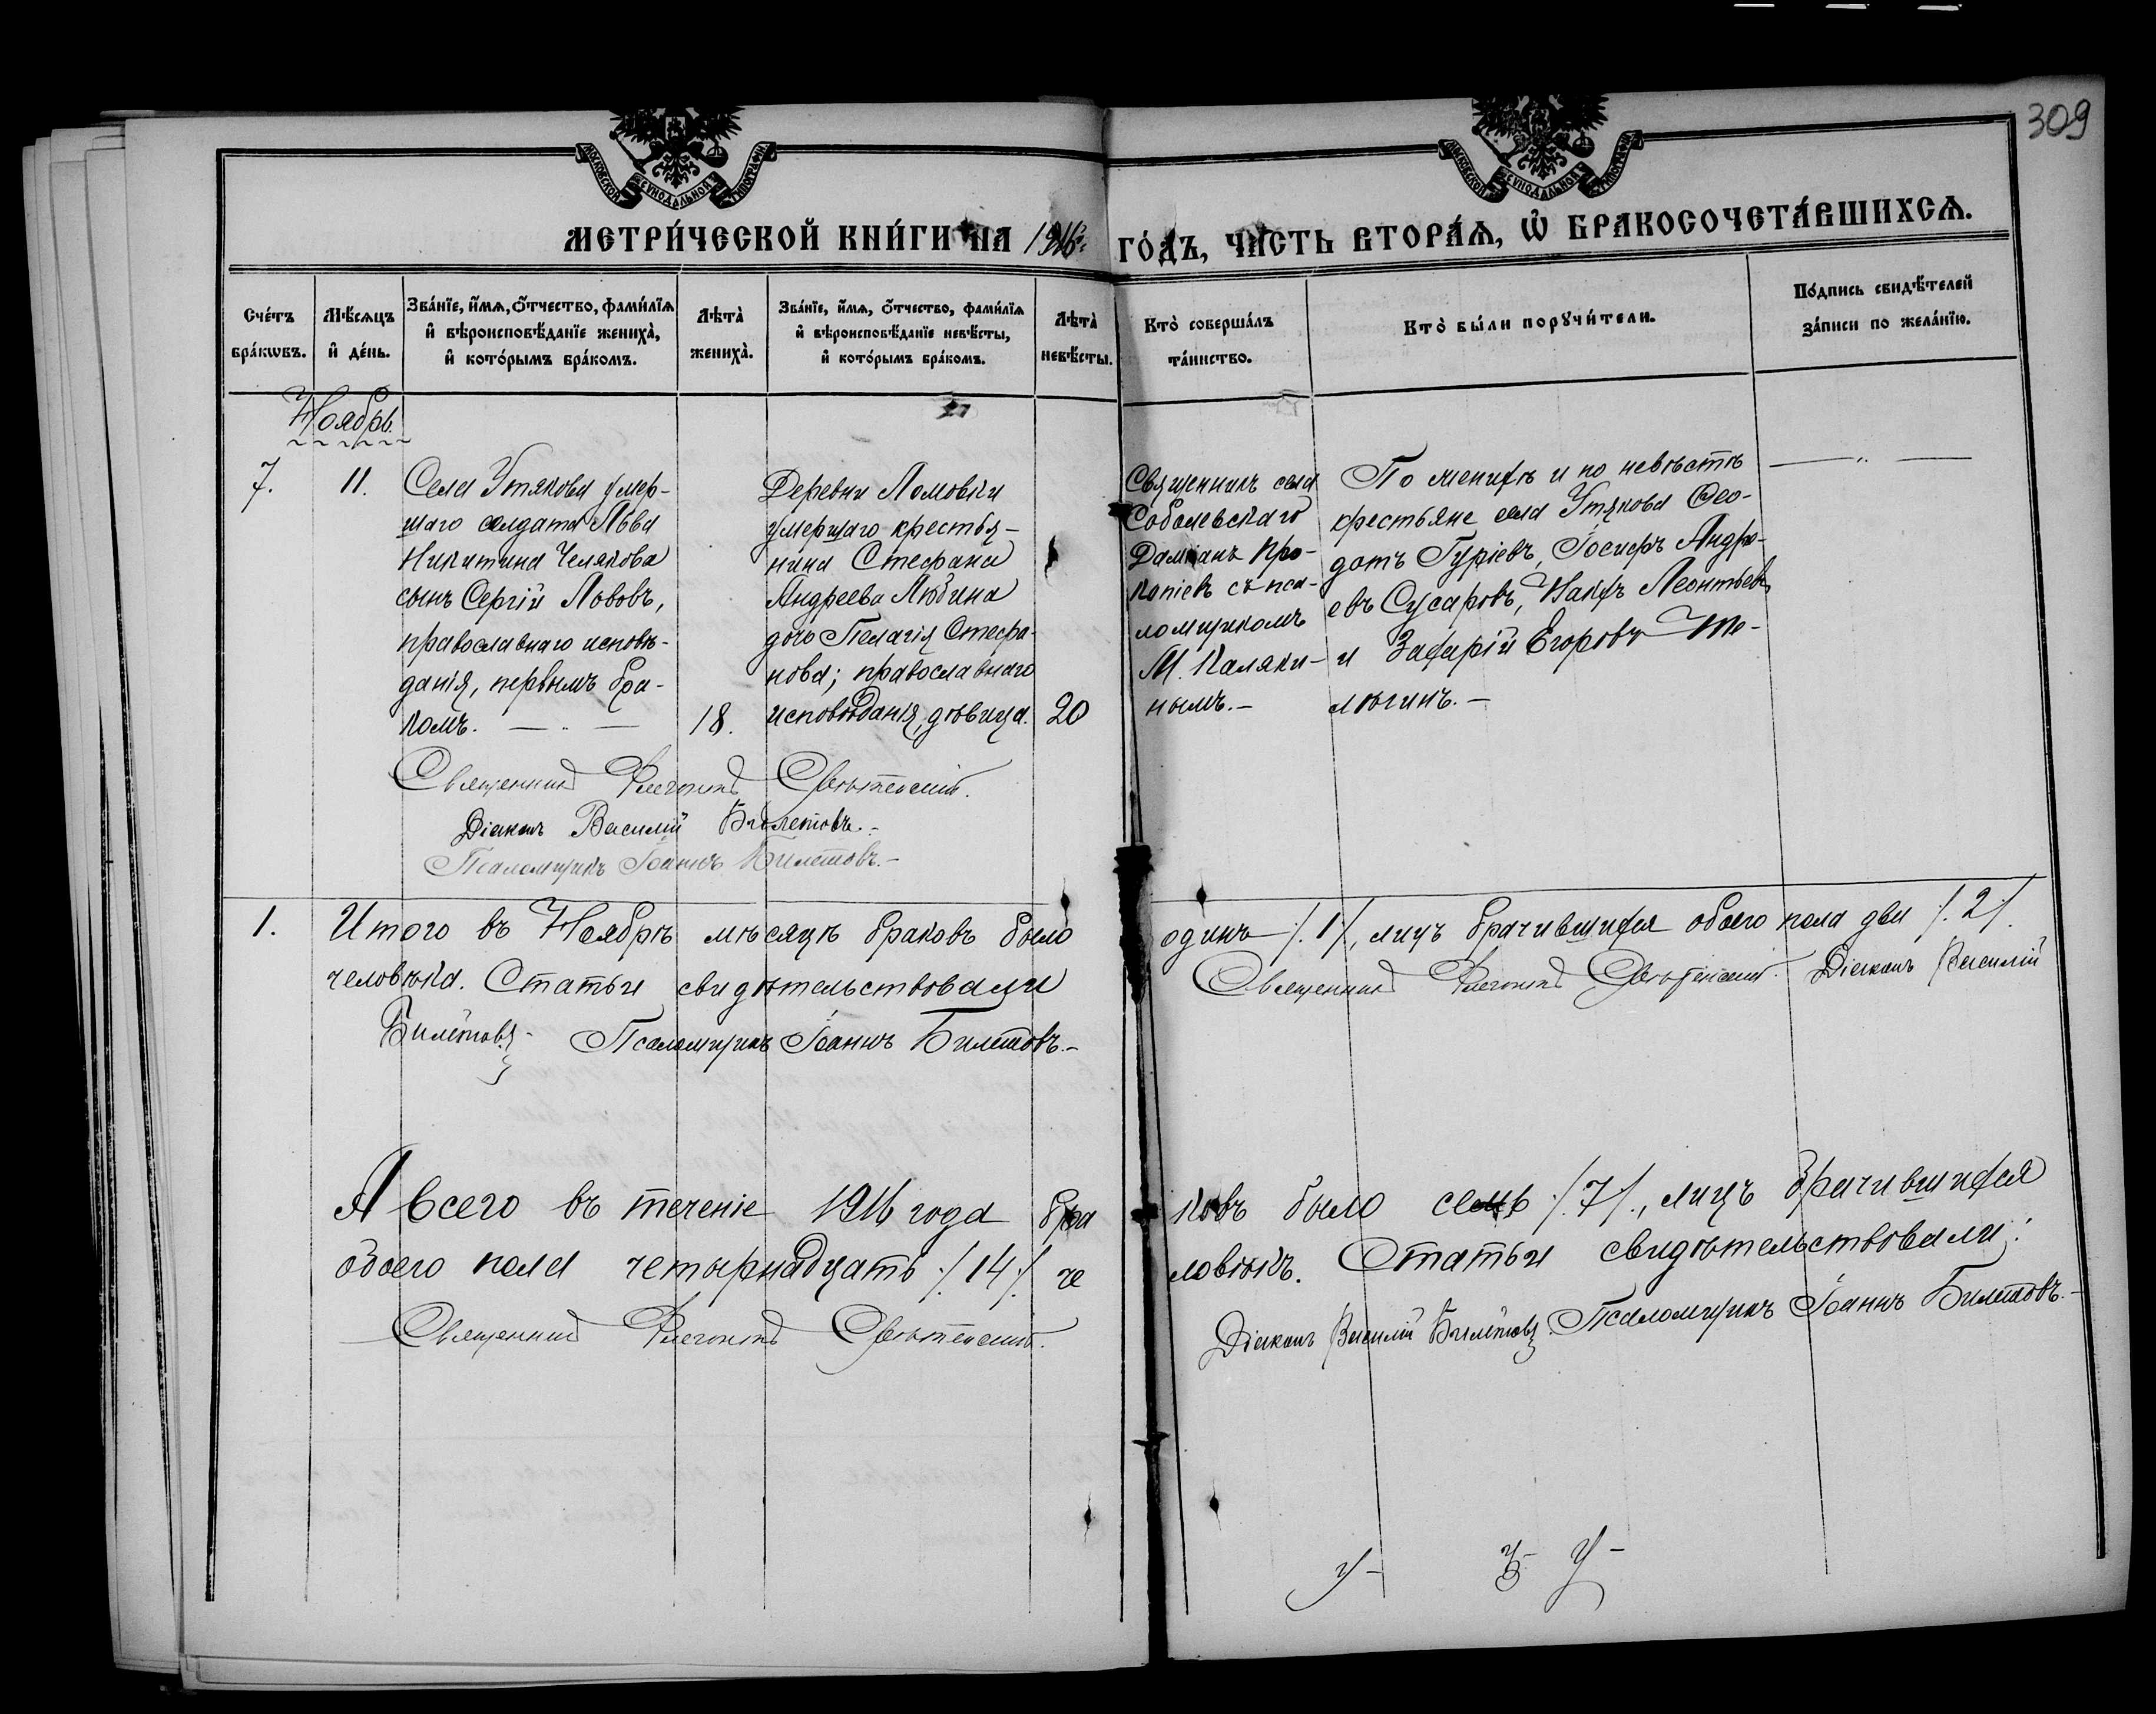 309
МОСКОВСКОЙ СѴНОДАЛЬНОЙ ТИПОГРАФІИ
МОСКОВСКОЙ СѴНОДАЛЬНОЙ ТИПОГРАФІИ
МЕТРИ́ЧЕСКОЙ КНИ́ГИ НА 1916 г. ГО́ДЪ, ЧА́СТЬ ВТОРА́Ѧ, Ѽ БРАКОСОЧЕТА́ВШИХСѦ.
Сче́тъ
бра́кѡвъ.
Мѣ́сяцъ
и҆ де́нь.
Зва́нїе, и҆́мѧ, ѻ҆́тчество, фами́лїѧ
и҆ вѣроисповѣ́данїе жениха̀,
и҆ кото́рымъ бра́комъ.
Лѣта̀
жениха̀.
Зва́нїе, и҆́мѧ, ѻ҆́тчество, фами́лїѧ
и҆ вѣроисповѣ́данїе невѣ́сты,
и҆ кото́рымъ бра́комъ.
Лѣта̀
невѣ́сты.
Кто̀ соверша́лъ
та́инство.
Кто̀ бы́ли порꙋчи́тели.
По́дпись свидѣ́телей
за́писи по жела́нїю.
Ноябрь.
7.
11.
Села Утякова умер-
шаго солдата Льва
Никитина Челякова
сынъ Сергій Львовъ,
православнаго исповѣ-
данія, первымъ бра-
комъ. — .. —
18.
Деревни Ломовки
умершаго крестья-
нина Стефана
Андреева Любина
дочь Пелагія Стефа-
нова; православнаго
исповѣданія, дѣвица.
20
Священникъ села
Соболевскаго
Даміанъ Про-
копіевъ съ пса-
ломщикомъ
М. Каляки-
нымъ. -
По женихѣ и по невѣстѣ
крестьяне села Утякова Ѳео-
дотъ Гуріевъ, Іосифъ Андре-
евъ Сусаровъ, Леонтьевъ
и Захарій Егоровъ Те-
лѣгинъ. -
— .. —
Священникъ Флегонтъ
Діаконъ Василій Билетовъ. -
Псаломщикъ Іоаннъ Билетовъ. -
1.
Итого въ Ноябрѣ мѣсяцѣ браковъ было одинъ /. 1 /., лицъ брачившихся обоего пола два /. 2 /.
человѣка. Статьи свидѣтельствовали Священникъ Флегонтъ Діаконъ Василій
Билетовъ - Псаломщикъ Іоаннъ Билетовъ. -
А всего въ теченіе 1916 года браковъ было семь /. 7 /., лицъ брачившихся
обоего пола четырнадцать /. 14 /. человѣкъ. Статьи свидѣтельствовали:
Священникъ Флегонтъ Діаконъ Василій Билетовъ. Псаломщикъ Іоаннъ Билетовъ. -